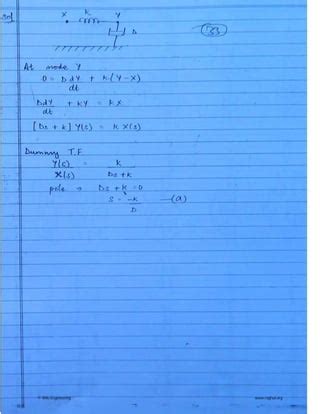 Sol
X K Y
D
53
At node Y
0 = D dY/dt + K(Y-X)
D dY/dt + KY = KX
[Ds + K] Y(s) = K X(s)
Dummy T.F
Y(s)/X(s) = K/Ds+K
pole → Ds + K = 0
S = -K/D —(a)
www.raghul.org